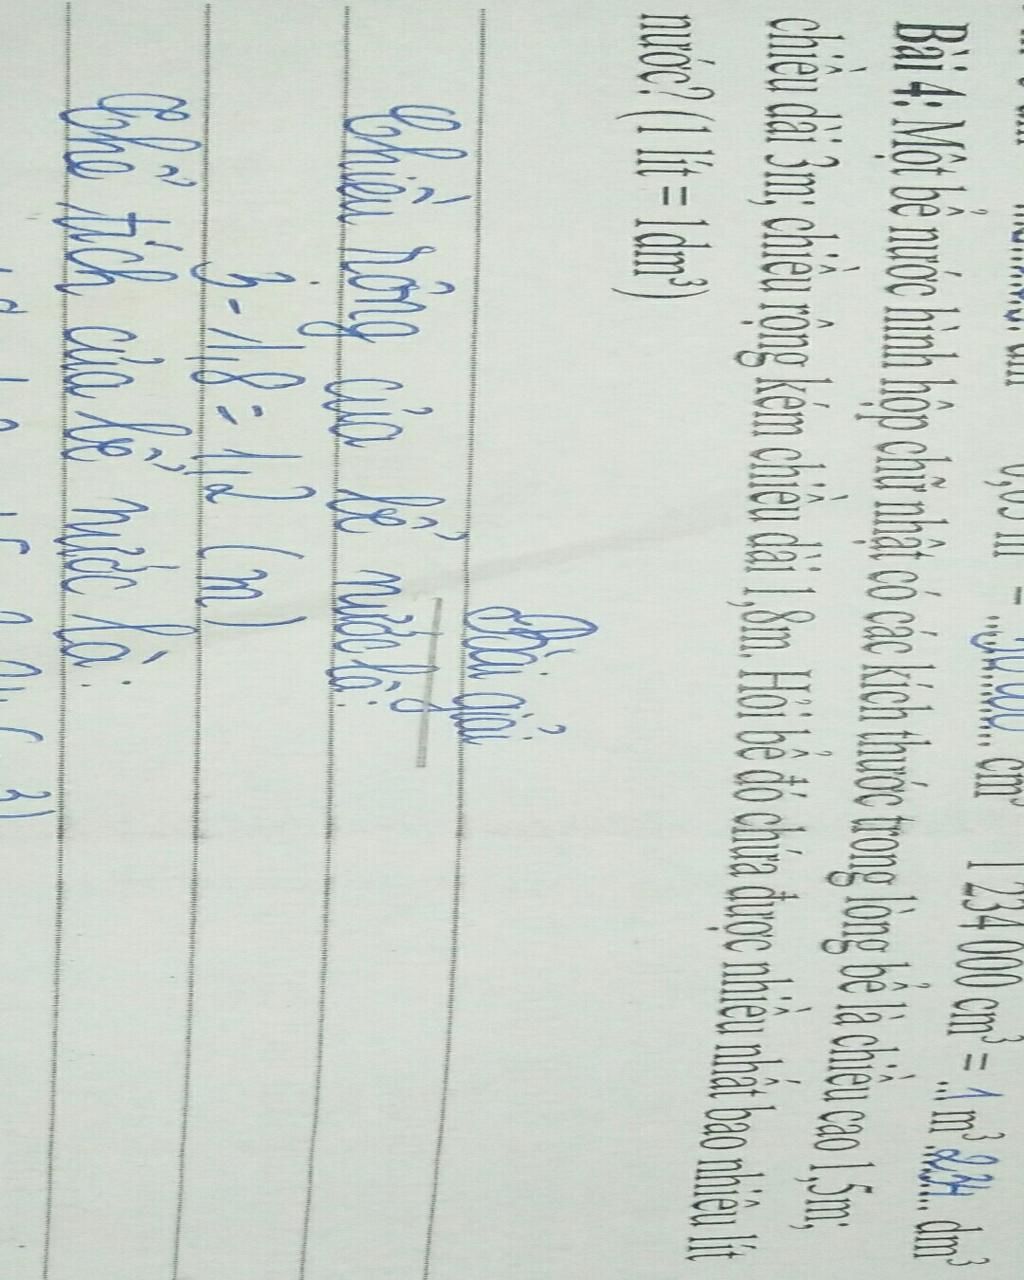 0,03 m = 30 000 cm³ 1 234 000 cm³ = 1 m³ 234 dm³
Bài 4: Một bể nước hình hộp chữ nhật có các kích thước trong lòng bể là chiều cao 1,5m;
chiều dài 3m; chiều rộng kém chiều dài 1,8m. Hỏi bể đó chứa được nhiều nhất bao nhiêu lít
nước? (1 lít = 1dm³)
Bài giải
Chiều rộng của bể nước là:
3 - 1,8 = 1,2 (m)
Thể tích của bể nước là: